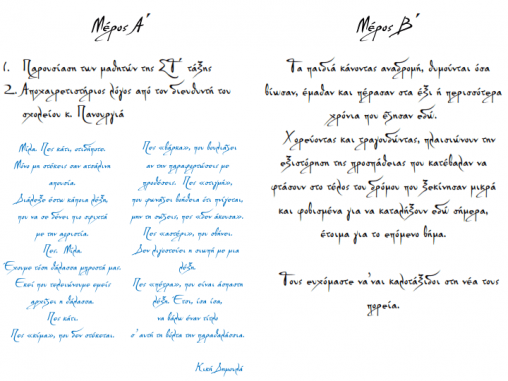 Μέρος Α΄
1. Παρουσίαση των μαθητών της ΣΤ΄ τάξης
2. Αποχαιρετιστήριος λόγος από τον διευθυντή του
σχολείου κ. Πανουργιά
Μίλα. Πες κάτι, οτιδήποτε.
Μόνο μη στέκεις σαν ατσάλινη
απουσία.
Διάλεξε έστω κάποια λέξη,
που να σε δένει πιο σφιχτά
με την αοριστία.
Πες. Μίλα.
Έχουμε τόση θάλασσα μπροστά μας.
Εκεί που τελειώνουμε εμείς
αρχίζει η θάλασσα.
Πες κάτι.
Πες «κύμα», που δεν στέκεται.
Πες «βάρκα», που βουλιάζει
αν την παραφορτώσεις με
προθέσεις. Πες «στιγμή»,
που φωνάζει βοήθεια ότι πνίγεται,
μην τη σώζεις, πες «δεν άκουσα».
Πες «αστέρι», που σβήνει.
Δεν λιγοστεύει η σιωπή με μια
λέξη.
Πες «πέτρα», που είναι άσπαστη
λέξη. Έτσι, ίσα ίσα,
να βάλω έναν τίτλο
σ' αυτή τη βόλτα την παραθαλάσσια.
Κική Δημουλά
Μέρος Β΄
Τα παιδιά κάνοντας αναδρομή, θυμούνται όσα
βίωσαν, έμαθαν και πέρασαν στα έξι ή περισσότερα
χρόνια που έζησαν εδώ.
Χορεύοντας και τραγουδώντας, πλαισιώνουν την
εξιστόρηση της προσπάθειας που κατέβαλαν να
φτάσουν στο τέλος του δρόμου που ξεκίνησαν μικρά
και φοβισμένα για να καταλήξουν εδώ σήμερα,
έτοιμα για το επόμενο βήμα.
Τους ευχόμαστε να'ναι καλοτάξιδοι στη νέα τους
πορεία.